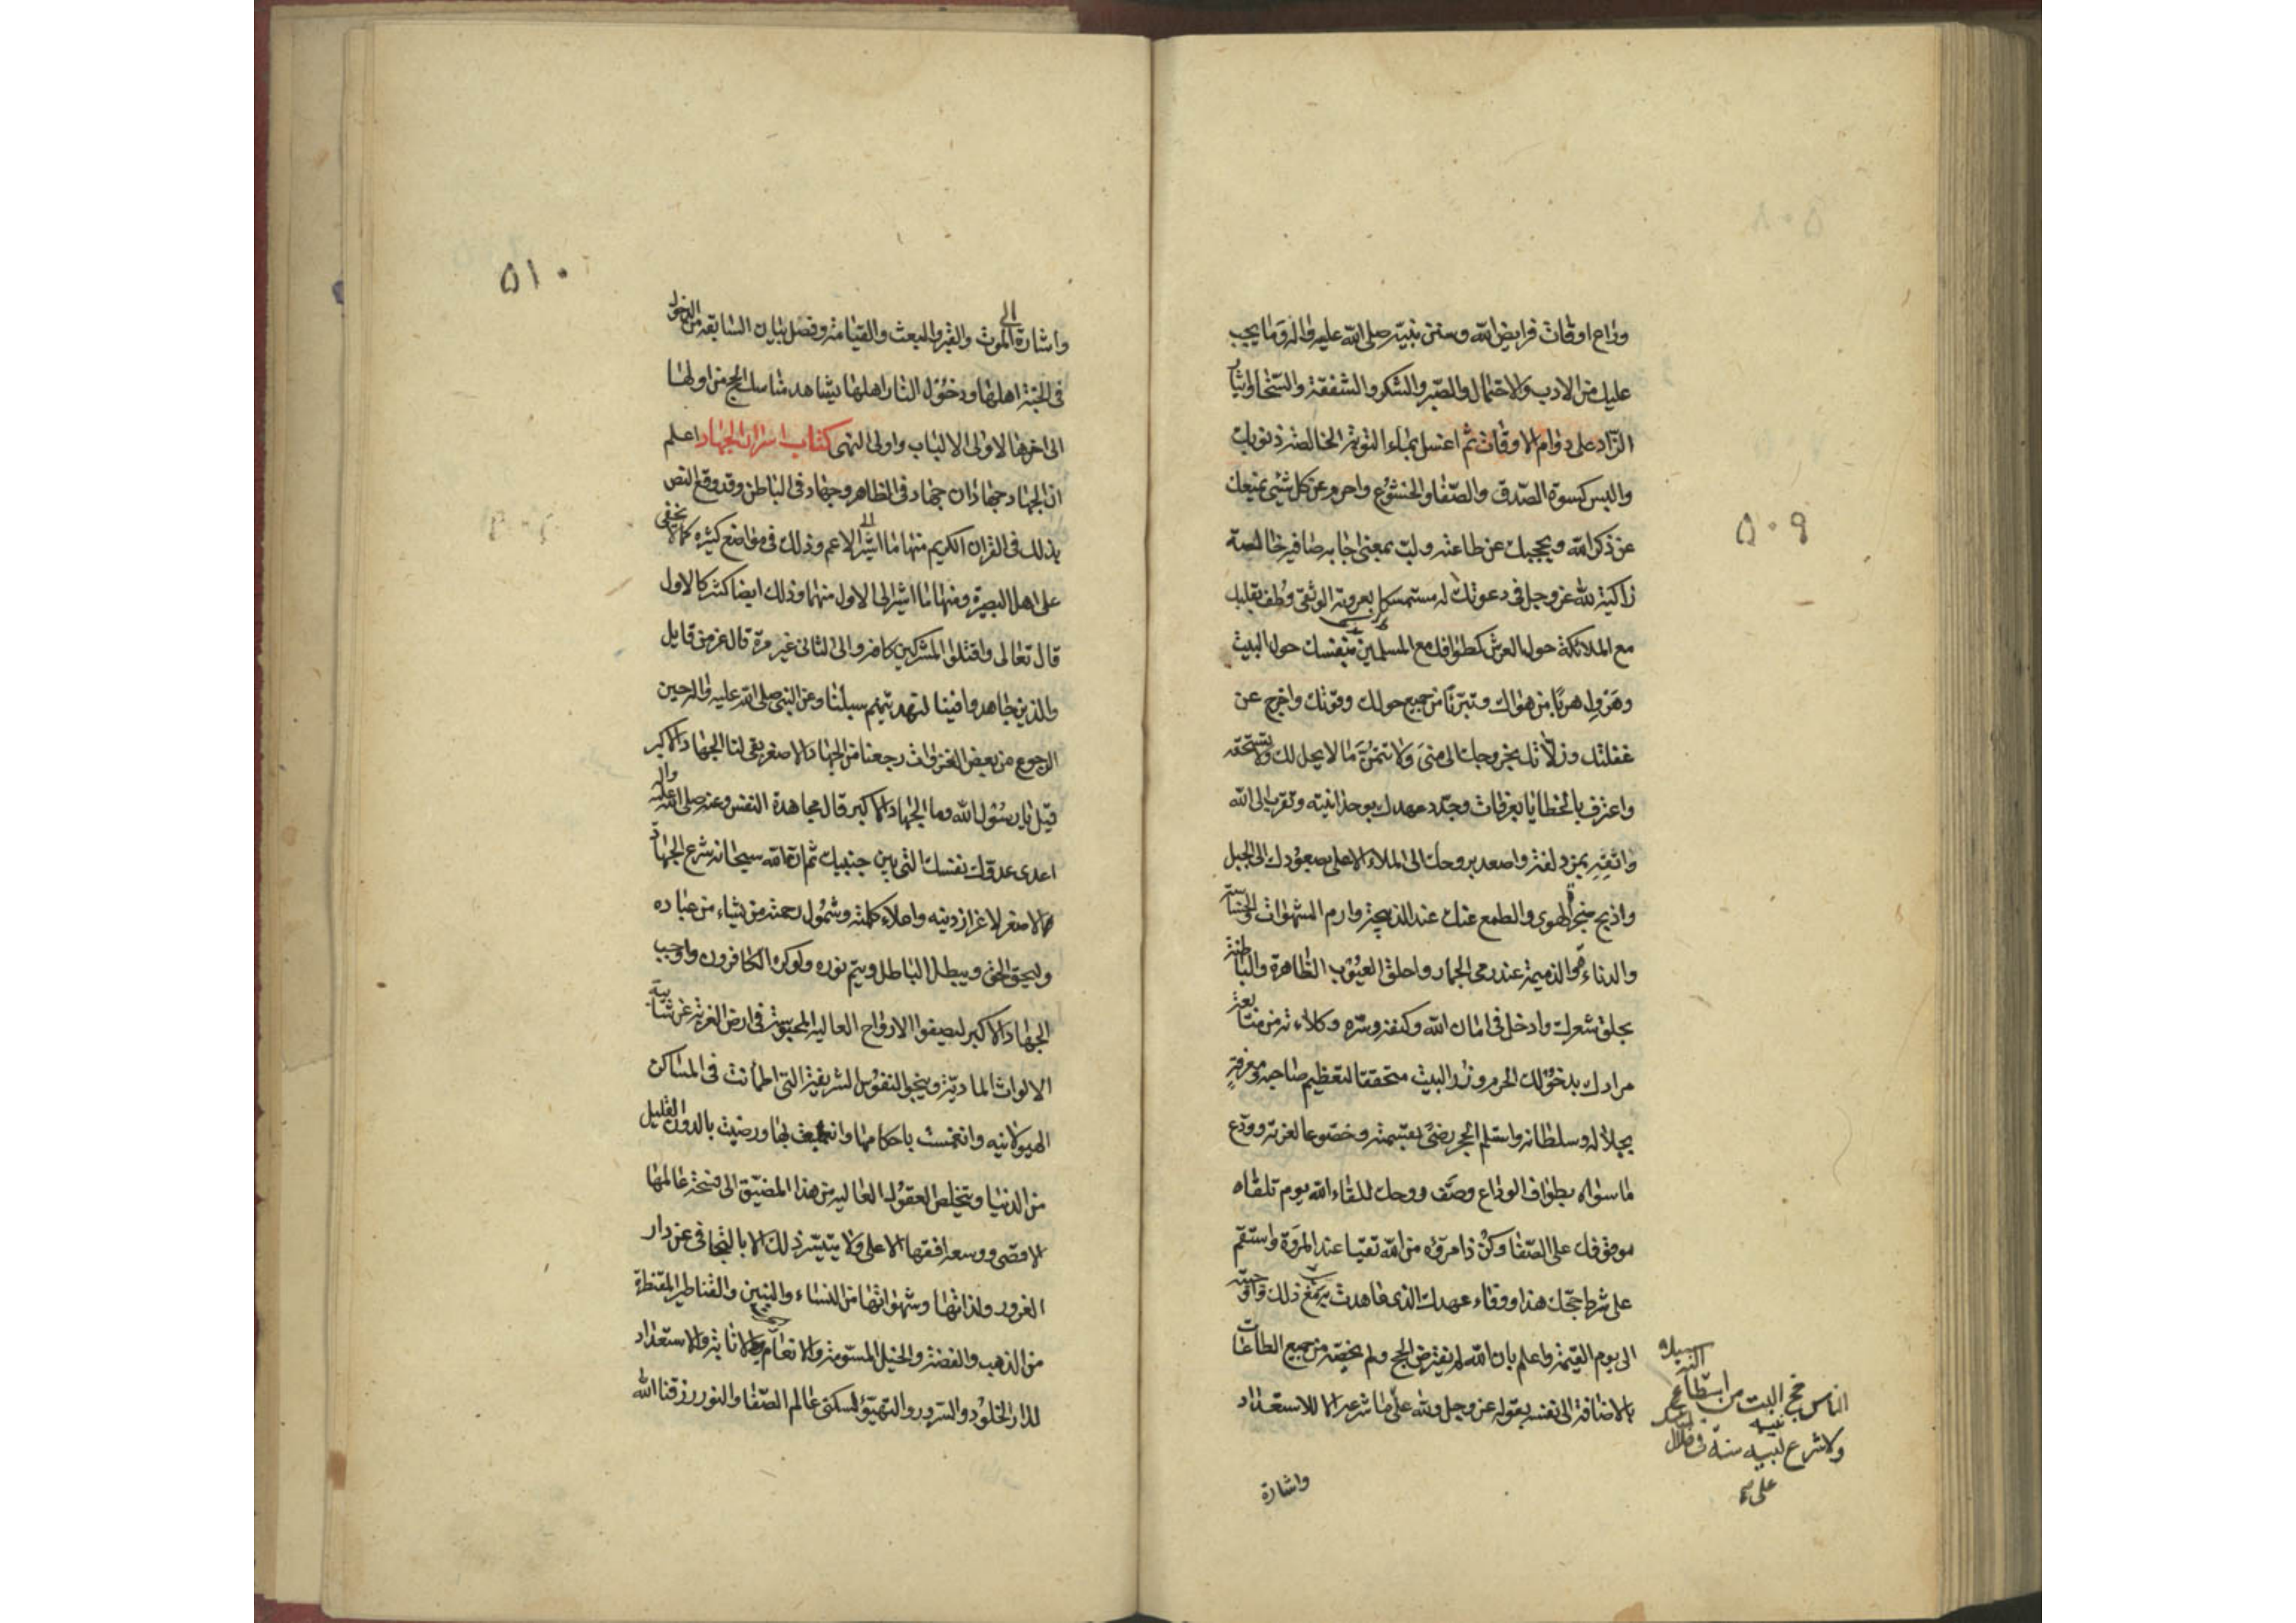 وراع اوقات فرايض الله وسنن نبيه صلى الله عليه واله وما يجب
عليك من الادب والاحتمال والصبر والشكر والشفقة والسخا وايثار
الزاد على دوام الاوقات ثم اغسل بماء التوبة الخالصة ذنوبك
والبس كسوة الصدق والصفا والخشوع واحرم عن كل شئ يمنعك
عن ذكر الله ويحجبك عن طاعته ولب بمعنى اجابه صافيه خالصة
زاكية لله عز وجل في دعوتك له مستمسكا بعروته الوثقى وطف بقلبك
مع الملائكة حول العرش كطوافك مع المسلمين بنفسك حول البيت
وهرول هربا من هواك وتبرئا من جميع حولك وقوتك واخرج عن
غفلتك وزلاتك بخروجك الى منى ولا تتمن ما لا يحل لك ولا تستحقه
واعترف بالخطايا بعرفات وجدد عهدك بوحدانيته وتقرب الى الله
واتقه بمزدلفة واصعد بروحك الى الملاء الاعلى بصعودك الى الجبل
واذبح حنجرة الهوى والطمع عنك عند الذبيحة وارم الشهوات والخساسة
والدناءة والذميمة عند رمى الجمار واحلق العيوب الظاهرة والباطنة
بحلق شعرك وادخل في امان الله وكنفه وستره وكلاءته من متابعة
مرادك بدخولك الحرم وزر البيت متحققا لتعظيم صاحبه ومعرفة
بجلاله وسلطانه واستلم الحجر رضى بقسمته وخضوعا لعزته وودع
ما سواه بطواف الوداع وصف روحك للقاء الله يوم تلقاه
بموقوفك على الصفا وكن ذا مروة من الله تقيا عند المروة واستقم
على شرط حجك هذا ووفاء عهدك الذى عاهدت به مع ذلك واوجبته
الى يوم القيمة واعلم بان الله لم يفترض الحج ولم يخصه من جميع الطاعات
بالاضافة الى نفسه بقوله عز وجل ولله على ما شرعه الا للاستعداد
الناس حج البيت من استطاع اليه سبيلا
ولا شرع نبيه سنة في خلال
على ما
واشارة
۵۰۹
۵۱۰
واشارة الى الموت والقبر والبعث والقيامة وفصل بيان السابقه من الدخول
في الجنة اهلها ودخول النار اهلها بمشاهد مناسك الحج من اولها
الى اخرها لاولى الالباب واولى النهى كتاب اسرار الجهاد اعلم
ان الجهاد جهادان جهاد في الظاهر وجهاد في الباطن وقد وقع النص
بذلك في القران الكريم منها ما اشير الى الاعم وذلك في مواضع كثيره كما لا يخفى
على اهل البصيرة ومنها ما اشير الى الاول منهما وذلك ايضا كثير كالاول
قال تعالى واقتلوا المشركين كافه والى الثانى غير مرة قال عز من قايل
والذين جاهدوا فينا لنهدينهم سبلنا وعن النبى صلى الله عليه واله حين
الرجوع من بعض الغزوات رجعنا من الجهاد الاصغر بقى لنا الجهاد الاكبر
قيل يا رسول الله وما الجهاد الاكبر قال مجاهدة النفس وعنه صلى الله عليه واله
اعدى عدوك نفسك التى بين جنبيك ثم ان الله سبحانه شرع الجهاد
الاصغر لاعزاز دينه واعلاء كلمته وشمول رحمته من يشاء من عباده
وليحق الحق ويبطل الباطل ويتم نوره ولو كره الكافرون واوجب
الجهاد الاكبر ليصفوا الارواح العاليه المحبوسة في ارض الغربة عن شايبة
الالواث المادية وينجو النفوس الشريفة التى اطمأنت في المساكن
الهيولانيه وانغمست باحكامها وانطبعت بها ورضيت بالدون القليل
من الدنيا ويتخلص العقول العاليه من هذا المضيق الى فسحة عالمها
الاقصى ووسعه افقها الاعلى ولا يتيسر ذلك الا بالتجافى عن دار
الغرور ولذاتها وشهواتها من النساء والبنين والقناطير المقنطرة
من الذهب والفضة والخيل المسومة والانعام والانابة والاستعداد
لدار الخلود والسرور والتهيؤ لسكنى عالم الصفا والنور رزقنا الله